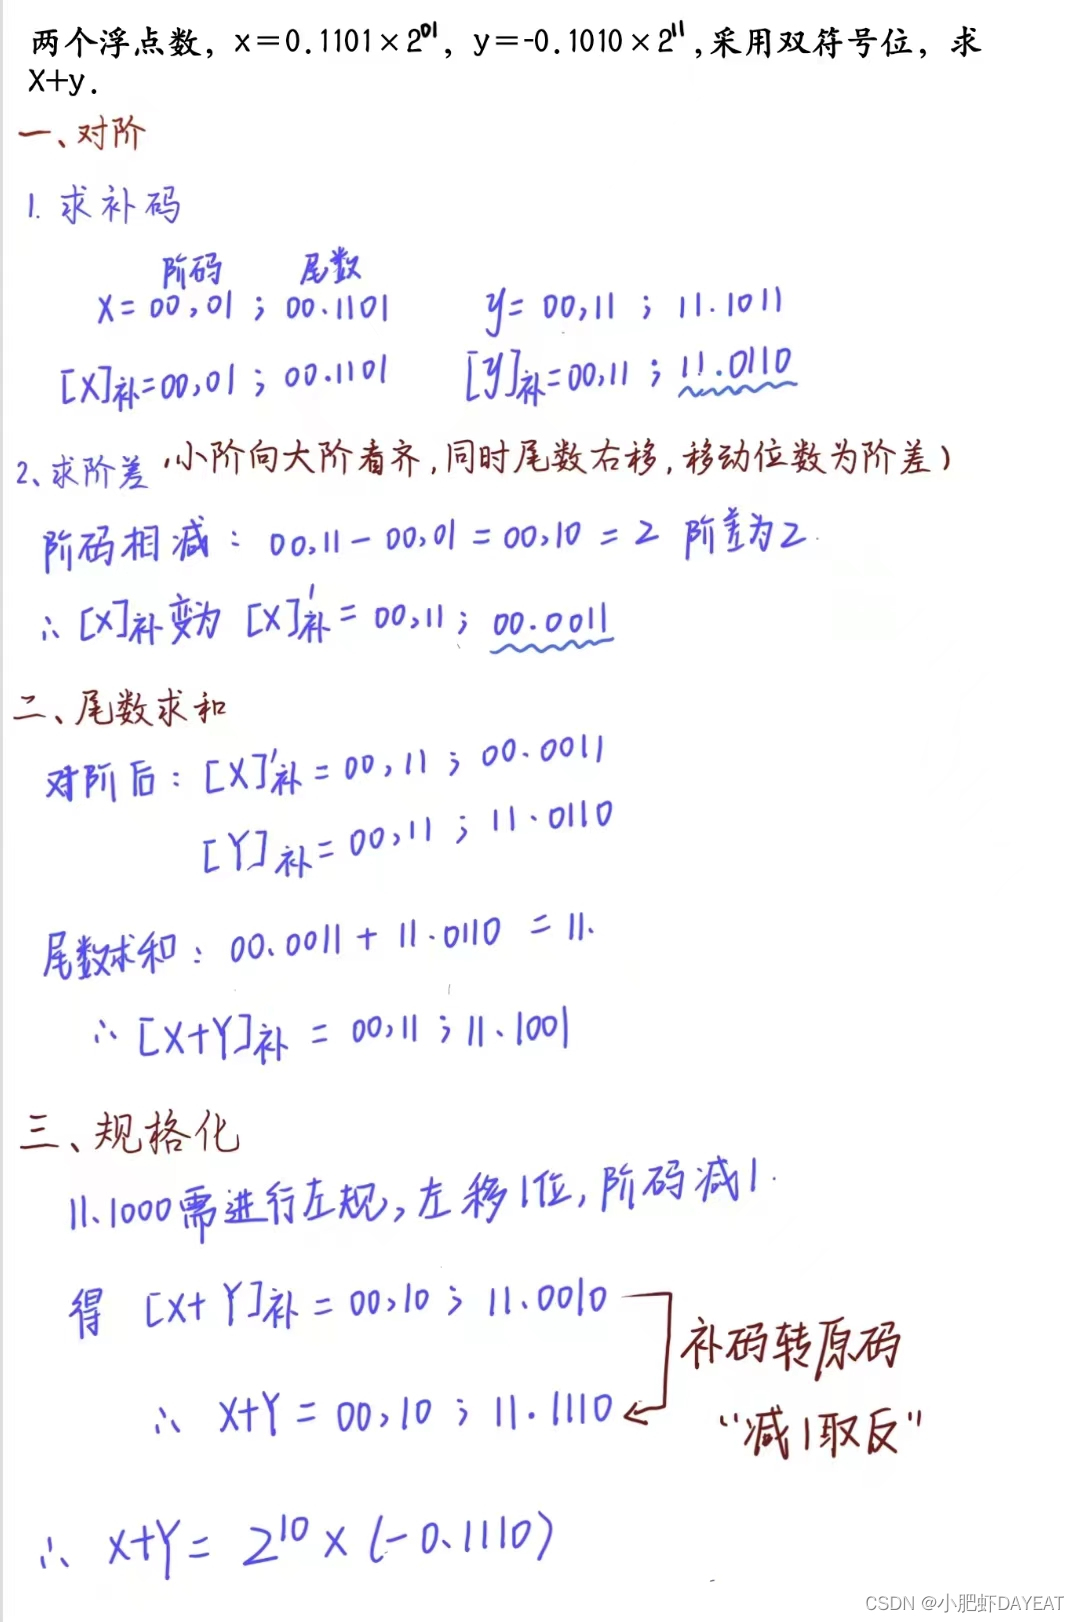 两个浮点数，x=0.1101×2^01，y=-0.1010×2^11,采用双符号位，求
X+y.
一、对阶
1. 求补码
阶码 尾数
X=00,01；00.1101 y=00,11；11.1011
[X]补=00,01；00.1101 [y]补=00,11；11.0110
2、求阶差（小阶向大阶看齐,同时尾数右移,移动位数为阶差）
阶码相减：00,11-00,01=00,10=2 阶差为2.
∴[X]补变为[X]'补=00,11；00.0011
二、尾数求和
对阶后：[X]'补=00,11；00.0011
[Y]补=00,11；11.0110
尾数求和：00.0011+11.0110=11.
∴[X+Y]补=00,11；11.1001
三、规格化
11.1000需进行左规,左移1位,阶码减1.
得 [X+Y]补=00,10；11.0010
补码转原码
∴ X+Y=00,10；11.1110
“减1取反”
∴ X+Y=2^10×(-0.1110)
CSDN @小肥虾DAYEAT